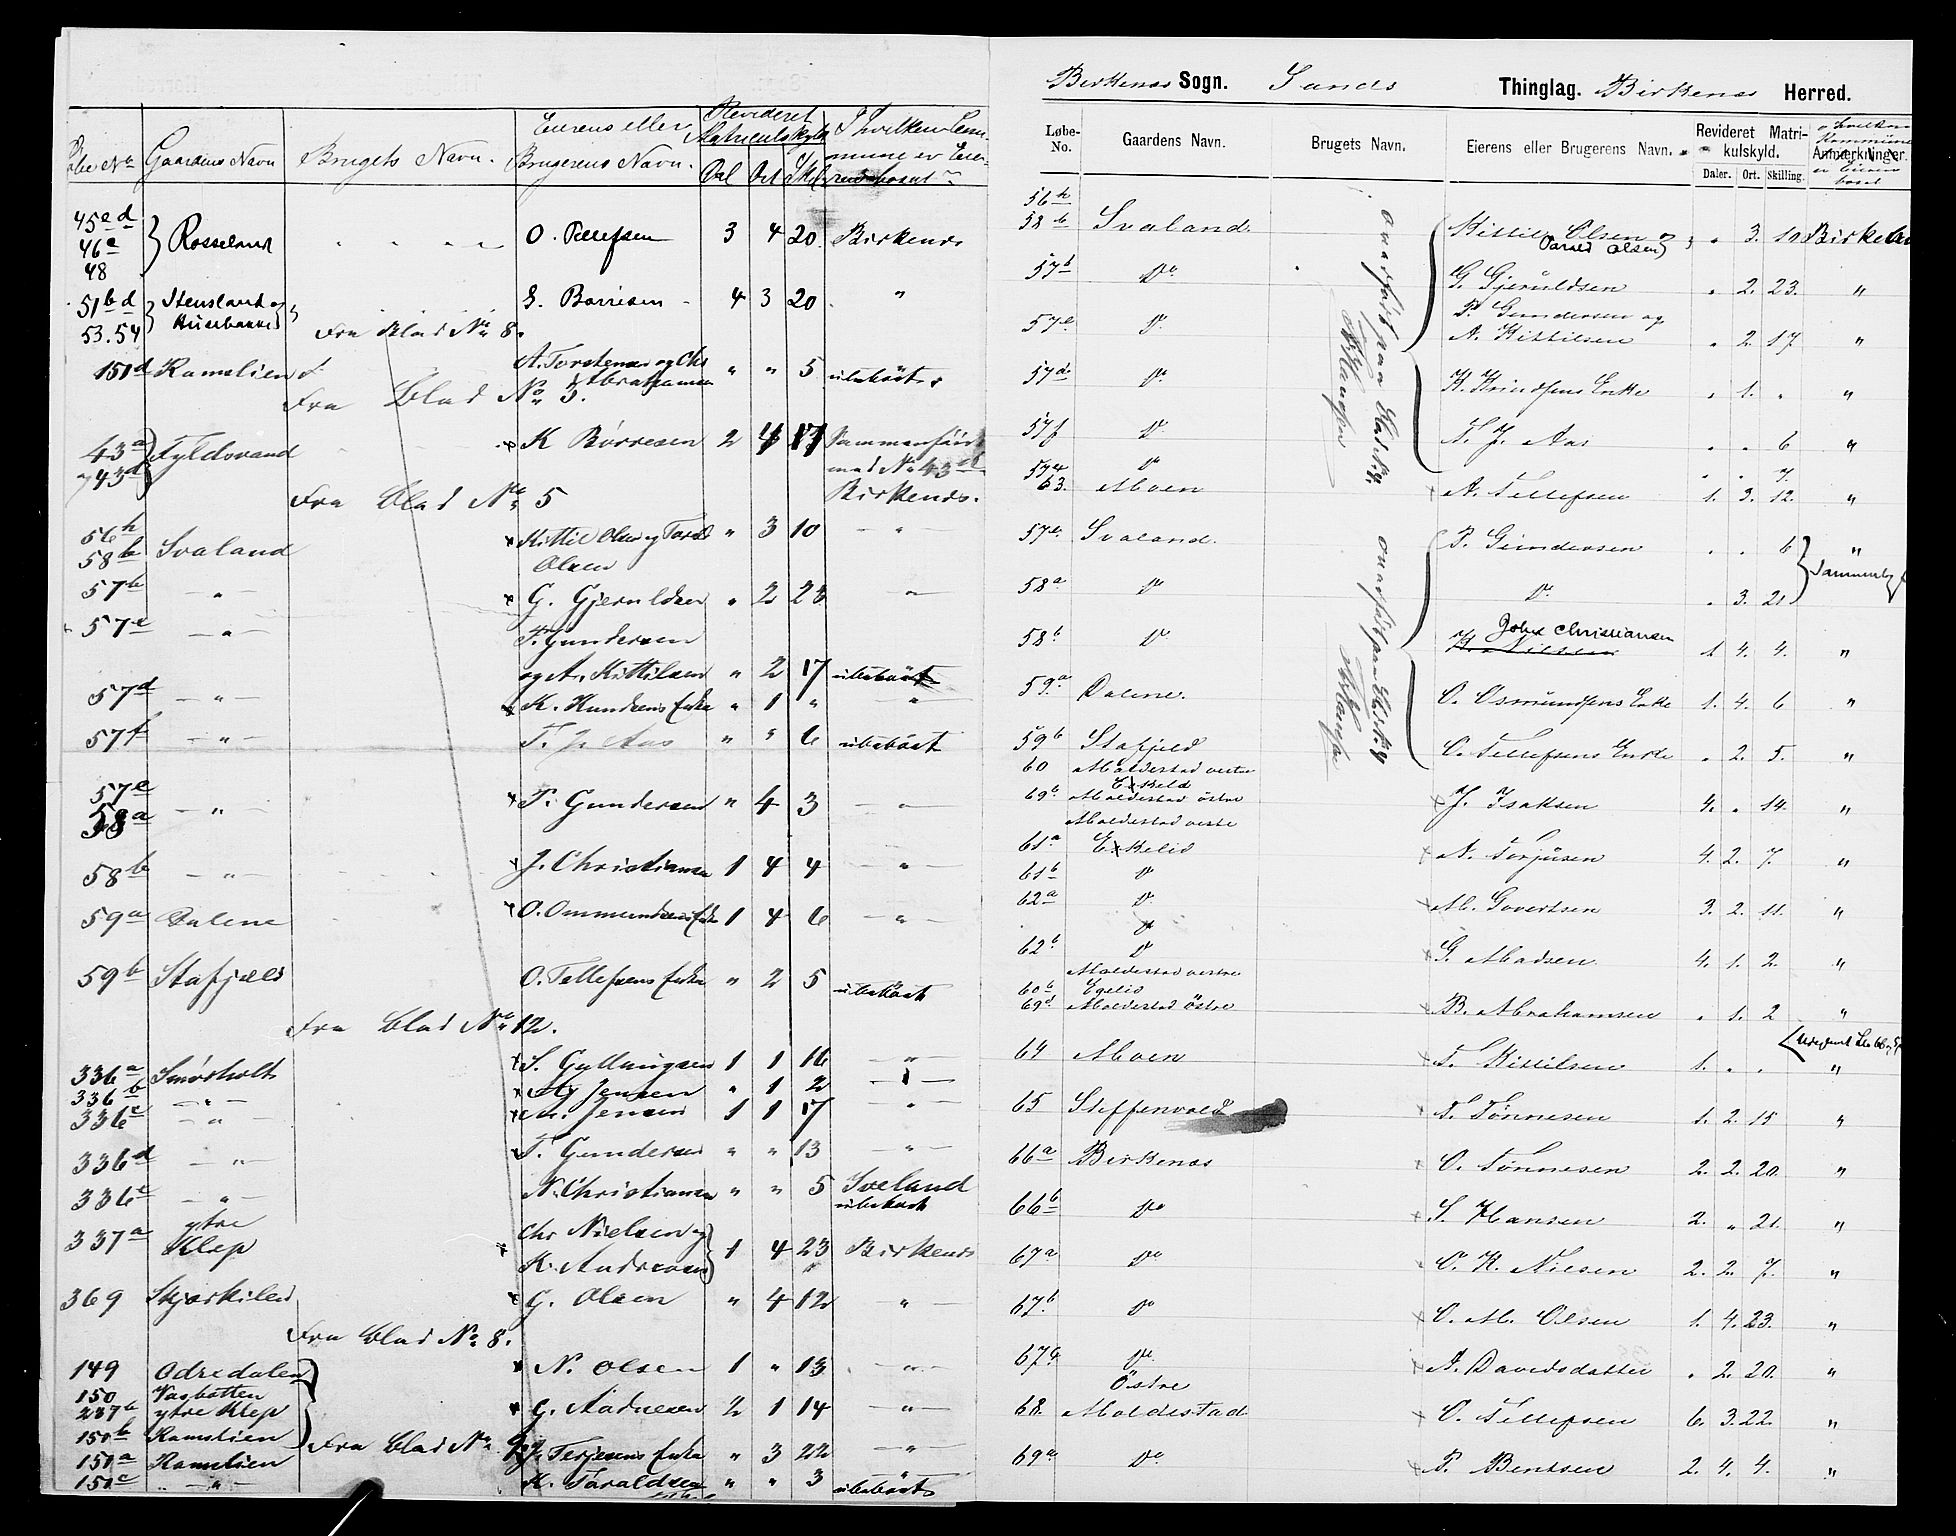 Løbe No. Gaardens Navn Brugets Navn. Eierens eller Brugerens Navn. Revideret Matriculskyld Dal Ort Skl I hvilken Com
45 a d
46 a } Rosseland O. Tellefsen 3 4 20 Birkenes
48
51 b d } Stensland og G. Børresen 4 3 20 "
53. 54 Husebakke
Fra Blad No 8.
151 d Ramslien A. Torstensen og Chr " " 5 ubeboet
Abrahamsen
Fra Blad No 3.
43 a } Fyldsvand K Børresen 2 4 17 Sammenføiet
43 d med No 43 d
Birkenes.
Fra Blad No 5
56 h
58 b Svaland Kittil Olsen og Tarald " 3 10 "
Olsen
57 b " G. Gjeruldsen " 2 23 "
57 e " T. Gundersen
og A. Kittilsen " 2 17 ubeboet
57 d " K. Knudsens Enke " 1 " "
57 f " T. J. Aas " " 6 ubeboet
57 c
58 a " T. Gundersen " 4 3 "
58 b " J. Christiansen 1 4 4 "
59 a Dalene O. Ommundsens Enke 1 4 6 "
59 b Stafjeld O. Tellefsens Enke " 2 5 ubeboet
Fra Blad No 12.
336 a Smørholt S. Gullaugsen 1 1 16 "
336 b " Jensen " 1 2 "
336 c " Jensen 1 1 17 "
336 d " T. Gundersen " " 13 "
336 e " N. Christiansen " " 5 Iveland
ubeboet
337 a ytre Chr Nielsen og
Klep K. Andersen 1 4 23 Birkenes
369 Skjærkilen G. Olsen " 4 12 "
Fra Blad No 8.
149 Odredalen N. Olsen 1 " 13 "
150 Vasbotten
237 b ytre Klep G. Aadnesen 2 1 14 "
150 b Ramslien
Fra Blad No
151 a Ramslien J. Terjesens Enke " 3 22 "
151 c " K. Taraldsen " " 3 ubeboet
Birkenes Sogn. Sands Thinglag. Birkenes Herred.
Løbe-No. Gaardens Navn. Brugets Navn. Eierens eller Brugerens Navn. Revideret Matrikulskyld. Anmærkninger.
Daler. Ort. Skilling.
i hvilken Kommune er Eieren bosat
56 h
58 b Svaland Kittil Olsen og " 3. 10 Birkenes
Tarald Olsen
57 b Do G. Gjeruldsen " 2. 23. "
57 e Do T. Gundersen og
A. Kittilsen " 2. 17 "
57 d Do K. Knudsens Enke " 1. " "
57 f Do T. J. Aas " " 6 "
57 Do " " 7.
63. Moen A. Tellefsen 1. 3. 12. "
57 c Svaland. T. Gundersen " " 6 "
58 a Do Do " 3. 21.
58 b Do John Christiansen
K. Nielsen 1 4. 4. "
59 a Dalene. O. Osmundsens Enke 1. 4. 6 "
59 b Stafjeld O. Tellefsens Enke " 2. 5. "
60 Moldestad vestre
Ekelid
69 b Moldestad østre J. Isaksen 4. " 14. "
Moldestad vestre
61 a Ekelid N. Torjusen 4. 2. 7. "
61 b Do
62 a Do M. Govertsen 3. 2. 11. "
Do
62 b Do G. Madsen 4. 1. 2. "
Moldestad vestre
60 b Egelid
69 d Moldestad Östre B. Abrahamsen " 1. 2 "
64 Moen T. Kittilsen 1. " " "
65 Steffensvold T. Tønnesen 1. 2. 15 "
66 a Birkenes O. Tønnesen 2. 2. 20. "
66 b Do S. Hansen 2. " 21. "
67 a Do O. K. Nilsen 2. 2. 7. "
67 b Do O. M. Olsen 1. 4. 23. "
67 c Do A. Davidsdatter " 2. 20. "
Östre
68. Moldestad O. Tellefsen 6. 3. 22. "
69 a Do T. Bentsen 2. 4. 4. "